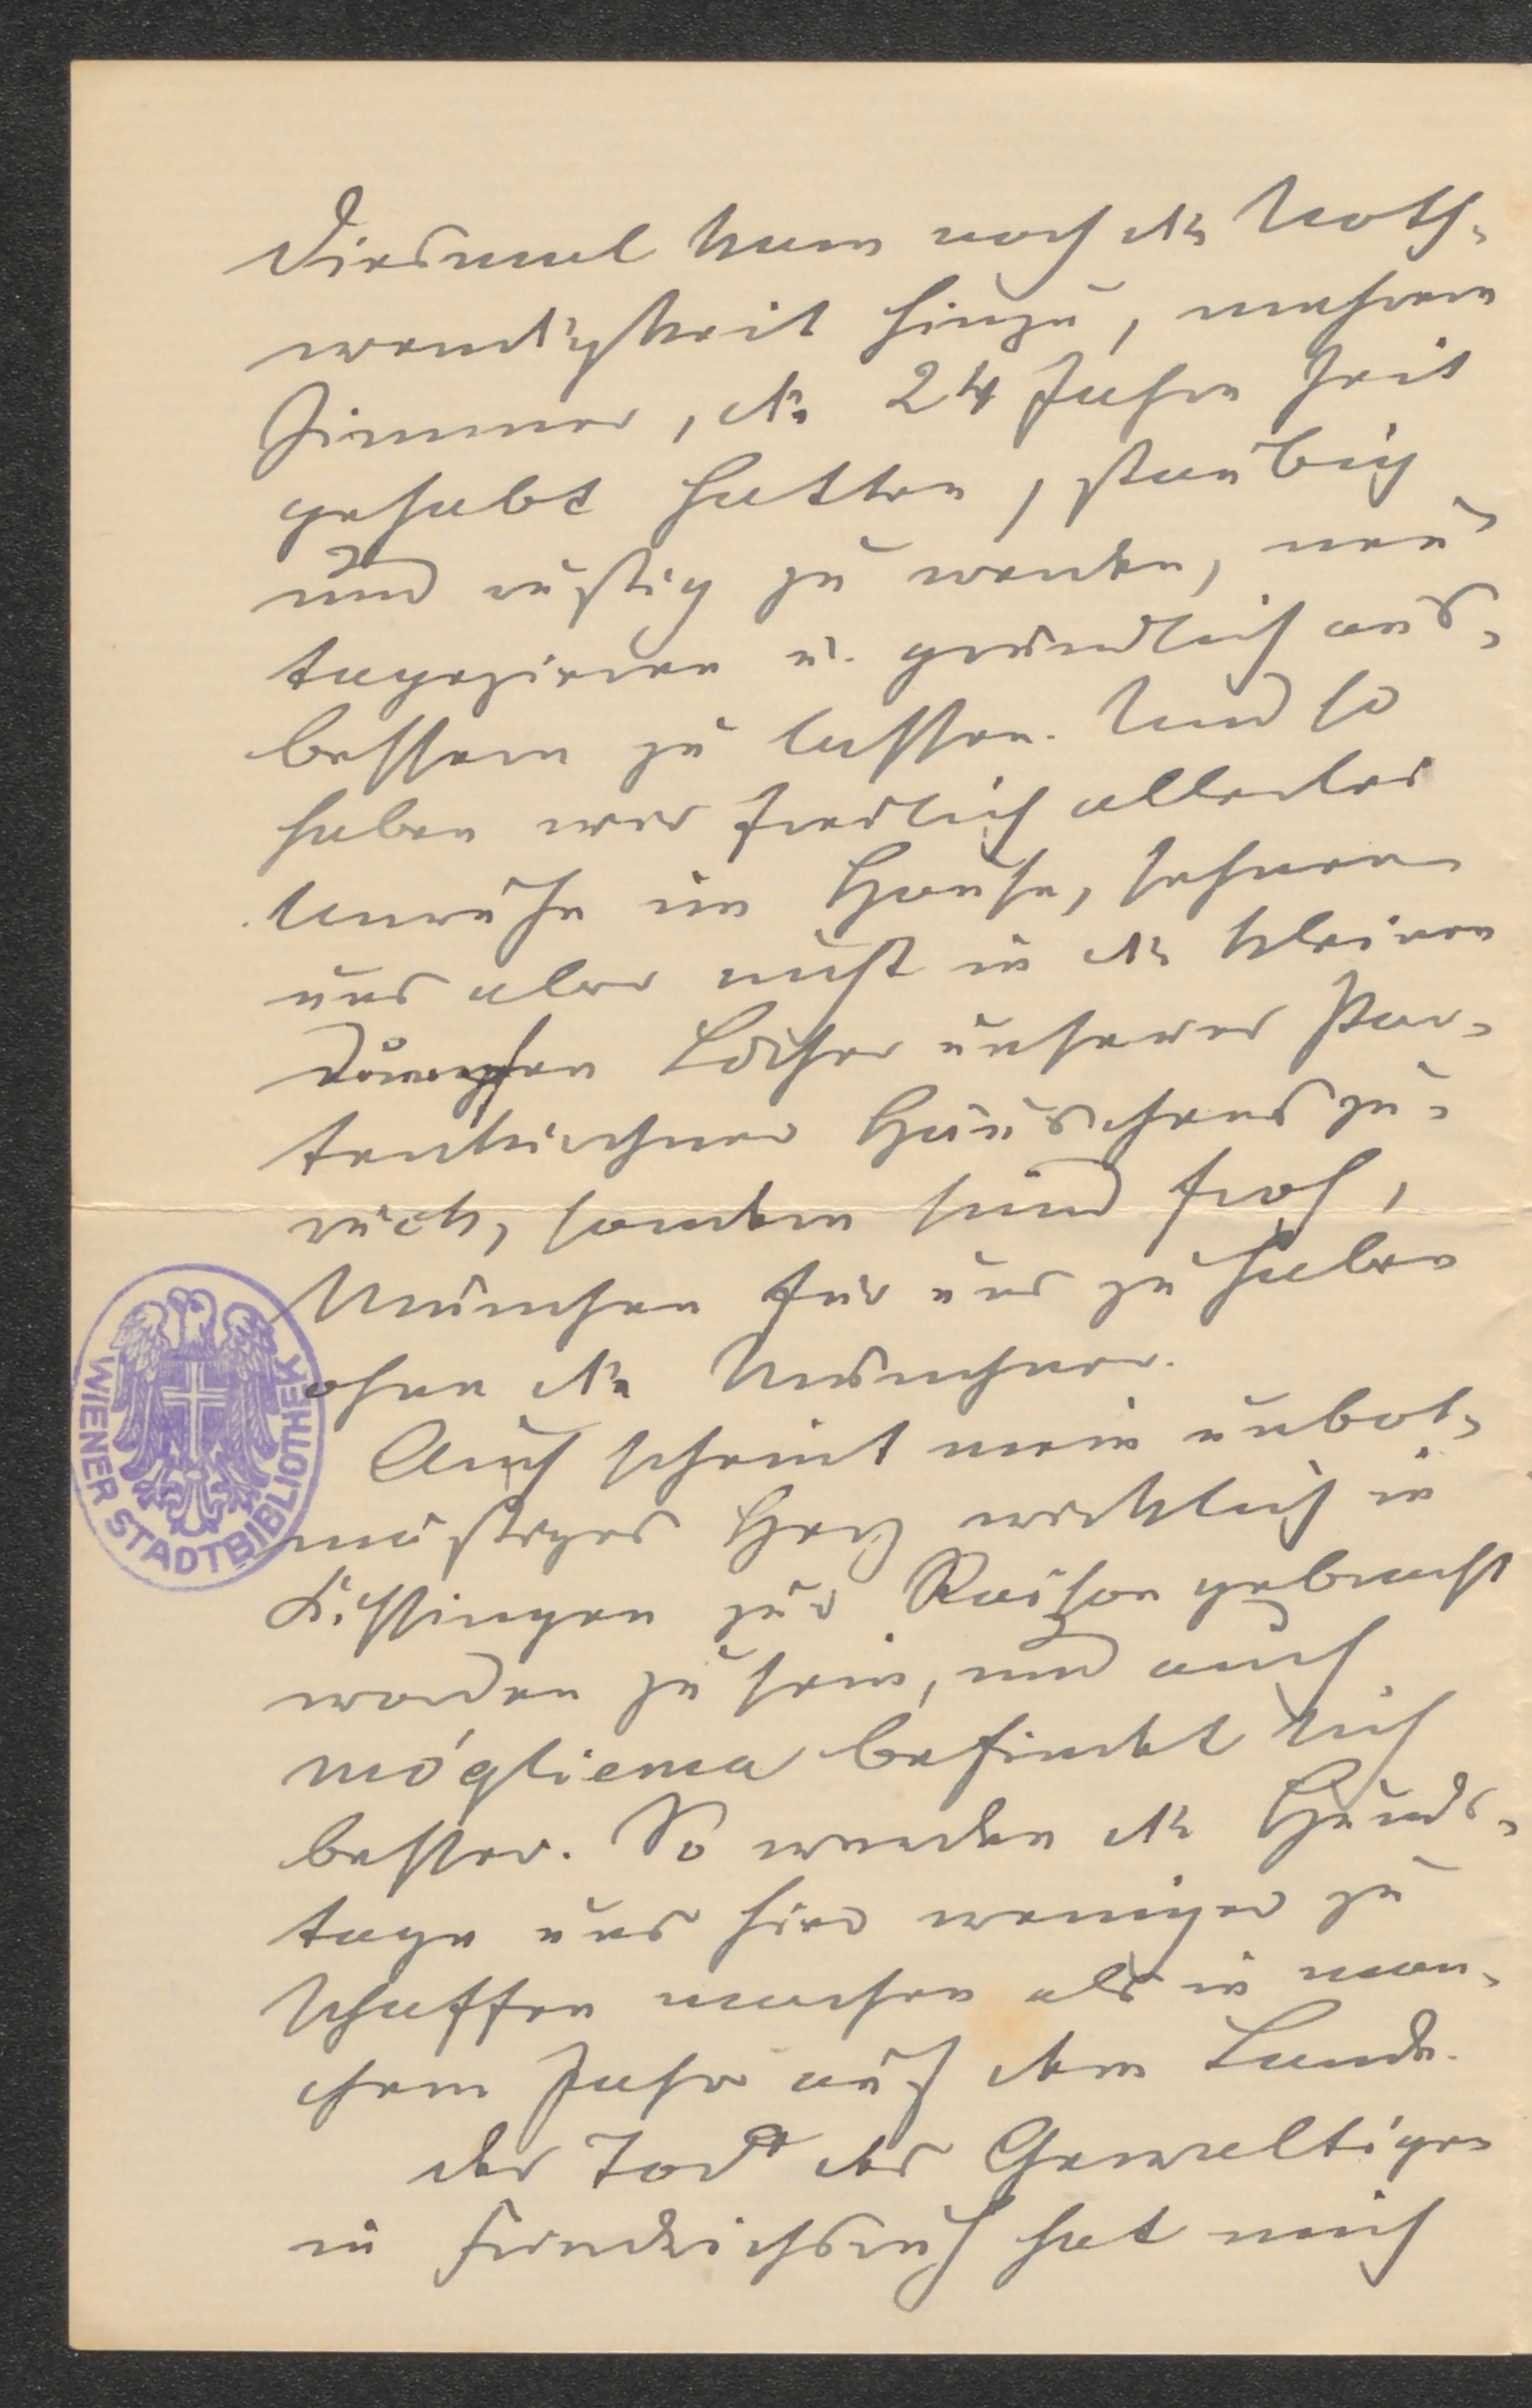 Diesmal kam noch die Noth-
wendigkeit hinzu, mehrere
Zimmer, die 24 Jahre Zeit
gehabt hatten, staubig
und rußig zu werden, neu
tapezieren u. gründlich aus-
bessern zu lassen. Und so
haben wir freilich allerlei
Unruhe im Hause, sehnen
uns aber nicht in die kleinen
dumpfen Löcher unseres Par-
tenkirchner Häuschens zu-
rück, sondern sind froh,
München für uns zu haben
ohne die Münchner.
Auch scheint mein unbot-
mäßiges Herz wirklich in
Kissingen zur Raison gebracht
worden zu sein, und auch
befindet sich
besser. So werden die Hunds-
tage uns hier weniger zu
schaffen machen als in man-
chem Jahr auf dem Lande.
Der Tod des Gewaltigen
in Friedrichsruh hat mich
WIENER STADTBIBLIOTHEK